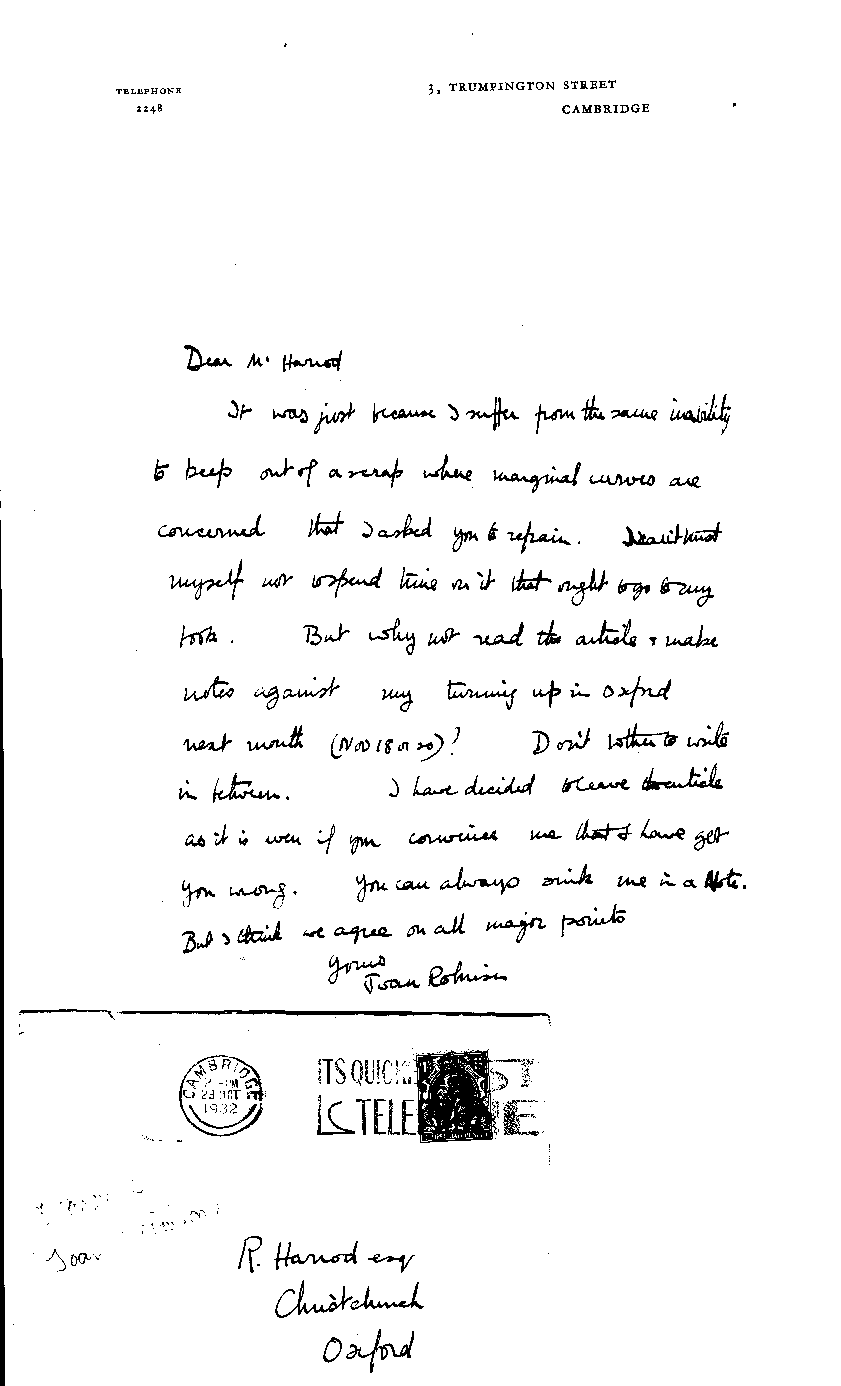 TELEPHONE
2248
3, TRUMPINGTON STREET
CAMBRIDGE
Dear Mr Harrod
It was just because I suffer from the same inability
to keep out of a scrap where marginal curves are
concerned that I asked you to refrain. I
myself not to spend time on it that ought to go to my
book. But why not read the article & make
notes against my turning up in Oxford
next month (Nov 18 or 20)? Don't bother to write
in between. I have decided to leave the article
as it is even if you convince me that I have got
you wrong. You can always me in a Note.
But I think we agree on all major points
Yours
Joan Robinson
CAMBRIDGE
PM
23 OCT
1932
ITS QUICK
TELE
Joan
R. Harrod esq
Christchurch
Oxford